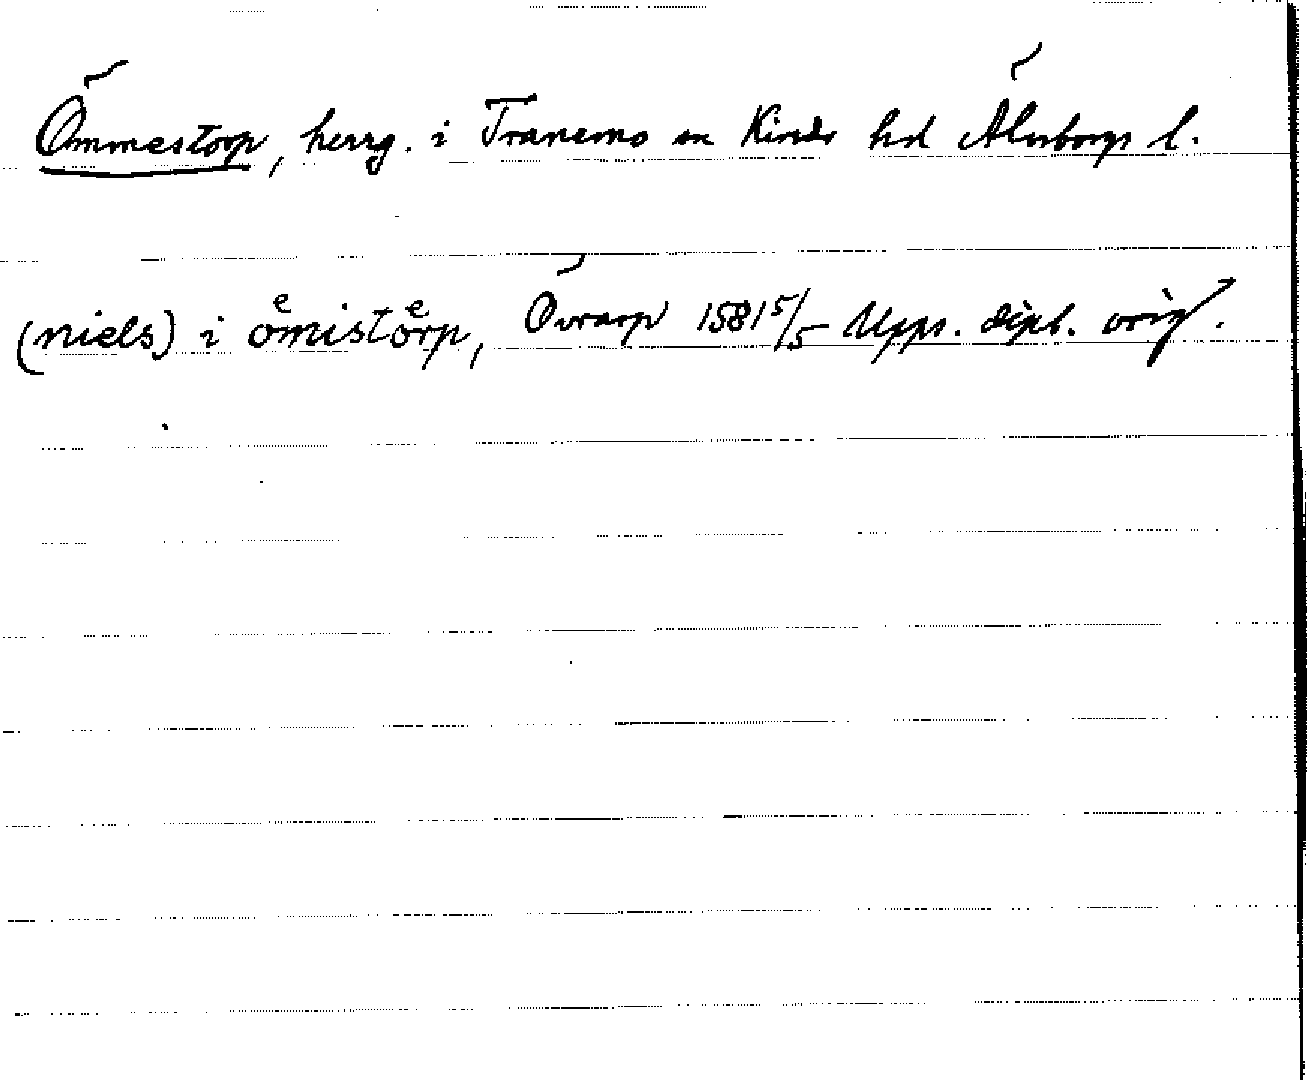 Ömmestorp, herrg. i Tranemo sn Kinds hd Älvsborgs l.
(niels) i oͤmistoͤrp, Övrarp 1581 5/5 Upps. dipl. orig.